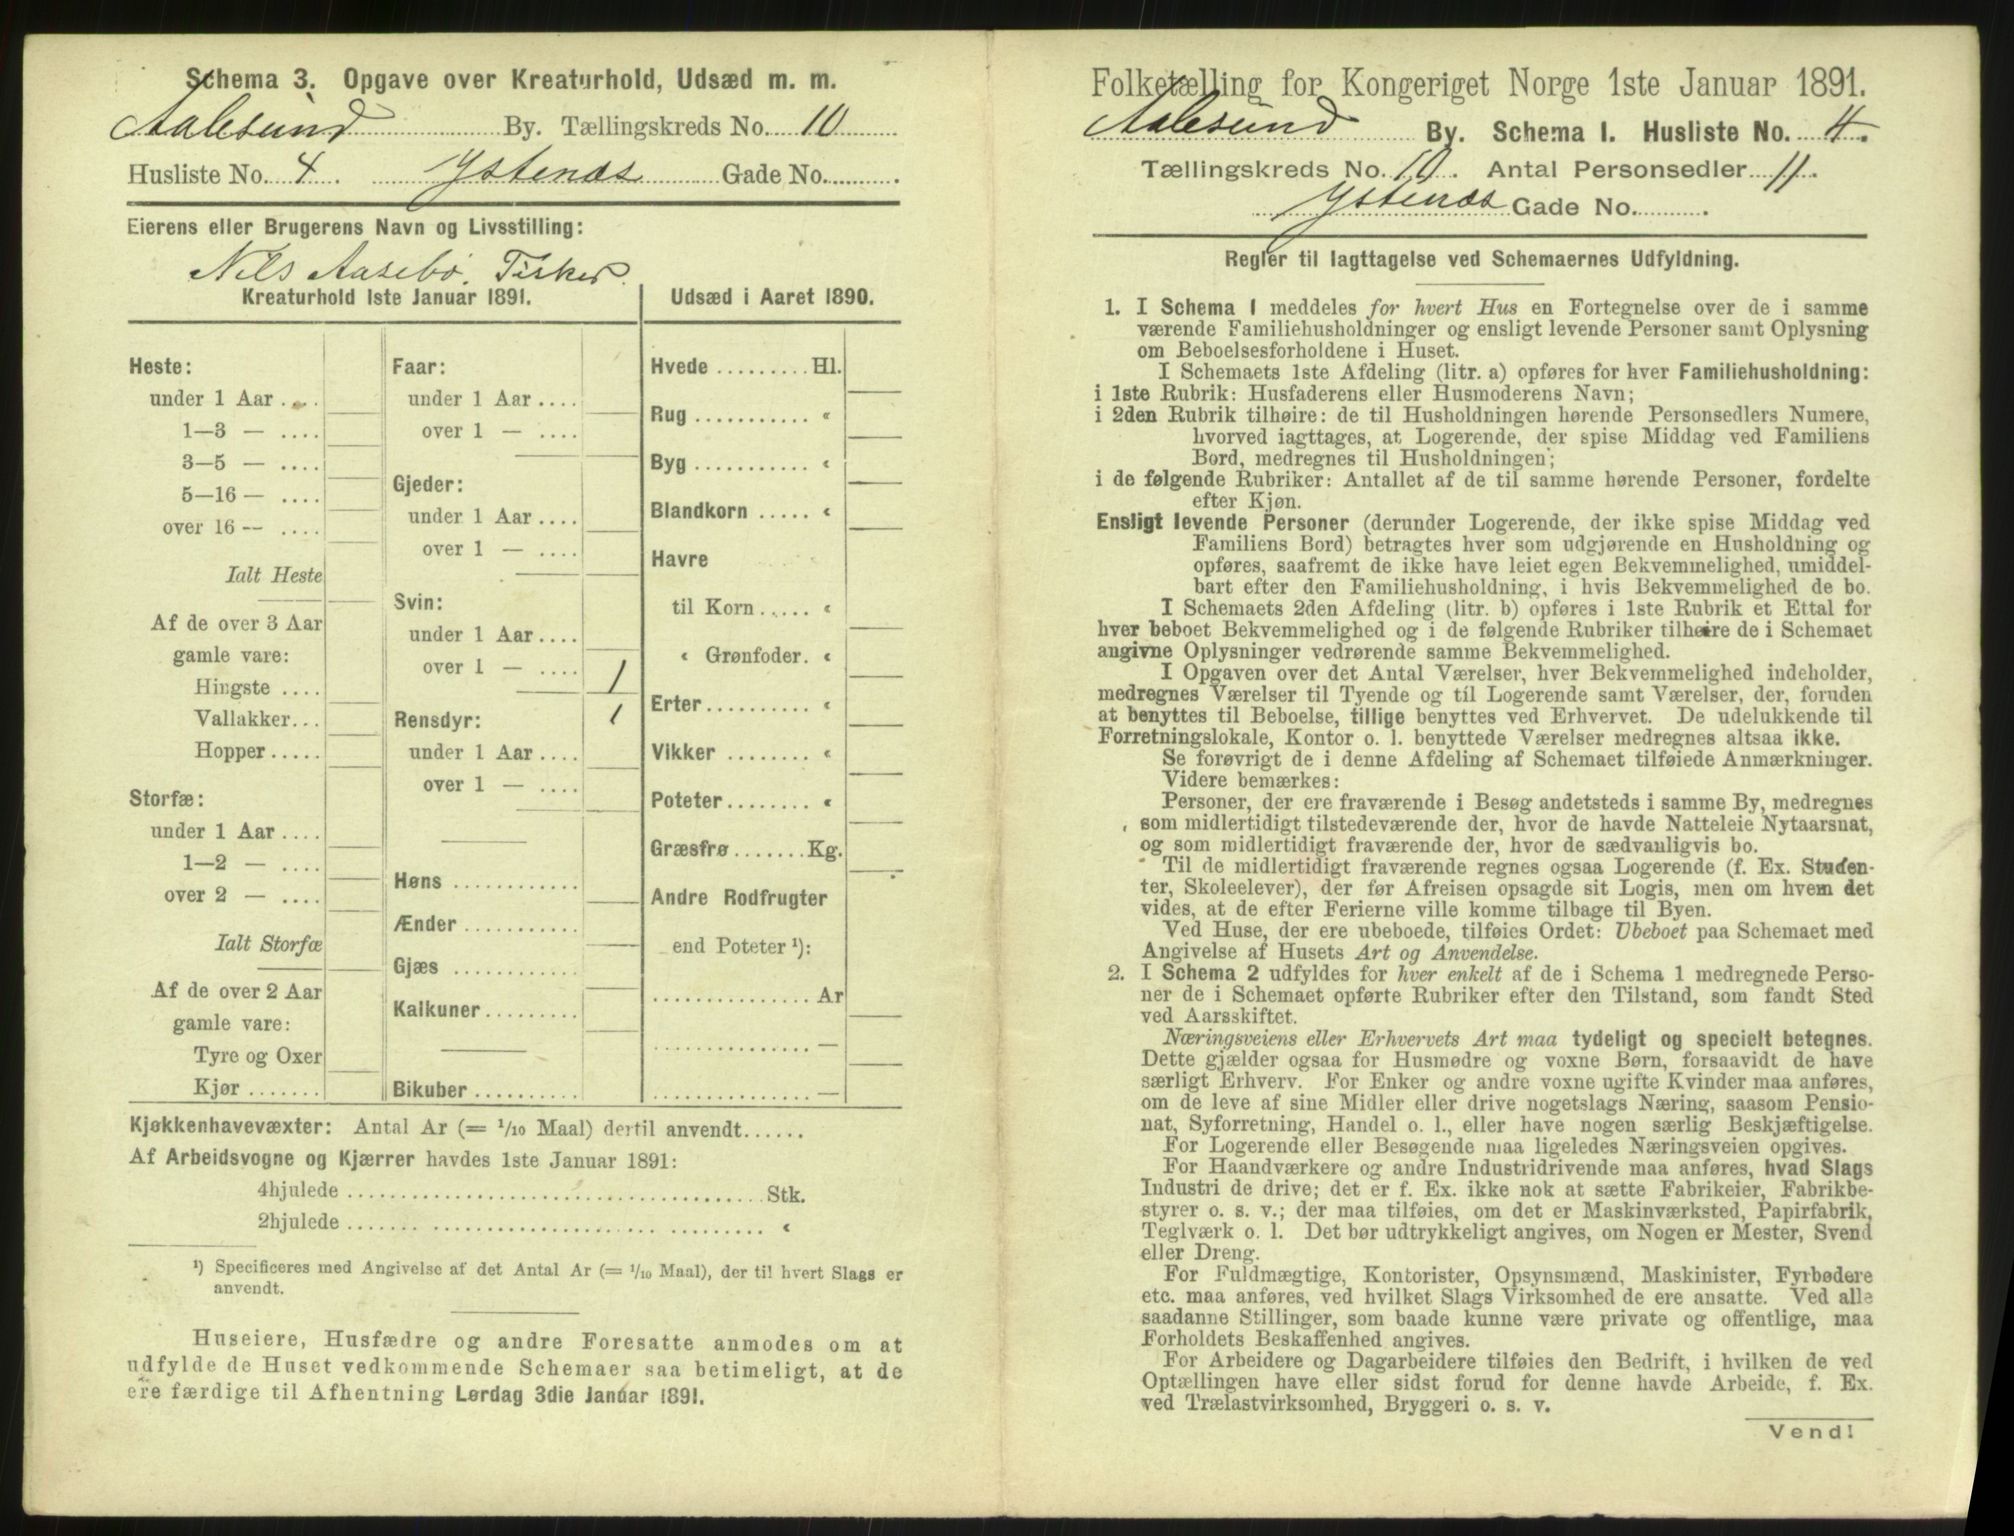 Schema 3. Opgave over Kreaturhold, Udsæd m. m.
Aalesund By. Tællingskreds No. 10
Husliste No. 4. Ystenæs Gade No. .
Eierens eller Brugerens Navn og Livsstilling:
Nils Aasebø. Fisker.
Kreaturhold 1ste Januar 1891.
Heste:
under 1 Aar ....
1—3 — ....
3—5 — ....
5—16 — ....
over 16 — ....
Ialt Heste
Af de over 3 Aar
gamle vare:
Hingste ....
Vallakker...
Hopper .....
Storfæ:
under 1 Aar ....
1—2 — ....
over 2 — ....
Ialt Storfæ
Af de over 2 Aar
gamle vare:
Tyre og Oxer
Kjør .......
Faar:
under 1 Aar ....
over 1 — ....
Gjeder:
under 1 Aar ....
over 1 — ....
Svin:
under 1 Aar ....
over 1 — .... 1
1
Rensdyr:
under 1 Aar ....
over 1 — ....
Høns ............
Ænder ...........
Gjæs ............
Kalkuner .........
Bikuber ..........
Udsæd i Aaret 1890.
Hvede ......... Hl.
Rug ........... «
Byg ........... «
Blandkorn ..... «
Havre
til Korn ..... «
« Grønfoder. «
Erter .......... «
Vikker ........ «
Poteter ........ «
Græsfrø ....... Kg.
Andre Rodfrugter
end Poteter ¹):
............... Ar
............... —
............... —
Kjøkkenhavevæxter: Antal Ar (= 1/10 Maal) dertil anvendt......
Af Arbeidsvogne og Kjærrer havdes 1ste Januar 1891:
4hjulede ....................................... Stk.
2hjulede ....................................... «
¹) Specificeres med Angivelse af det Antal Ar (= 1/10 Maal), der til hvert Slags er
anvendt.
Huseiere, Husfædre og andre Foresatte anmodes om at
udfylde de Huset vedkommende Schemaer saa betimeligt, at de
ere færdige til Afhentning Lørdag 3die Januar 1891.
Folketælling for Kongeriget Norge 1ste Januar 1891.
Aalesund By. Schema 1. Husliste No. 4.
Tællingskreds No. 10. Antal Personsedler 11.
Ystenæs Gade No. .
Regler til Iagttagelse ved Schemaernes Udfyldning.
1. I Schema 1 meddeles for hvert Hus en Fortegnelse over de i samme
værende Familiehusholdninger og ensligt levende Personer samt Oplysning
om Beboelsesforholdene i Huset.
I Schemaets 1ste Afdeling (litr. a) opføres for hver Familiehusholdning:
i 1ste Rubrik: Husfaderens eller Husmoderens Navn;
i 2den Rubrik tilhøire: de til Husholdningen hørende Personsedlers Numere,
hvorved iagttages, at Logerende, der spise Middag ved Familiens
Bord, medregnes til Husholdningen;
i de følgende Rubriker: Antallet af de til samme hørende Personer, fordelte
efter Kjøn.
Ensligt levende Personer (derunder Logerende, der ikke spise Middag ved
Familiens Bord) betragtes hver som udgjørende en Husholdning og
opføres, saafremt de ikke have leiet egen Bekvemmelighed, umiddel-
bart efter den Familiehusholdning, i hvis Bekvemmelighed de bo.
I Schemaets 2den Afdeling (litr. b) opføres i 1ste Rubrik et Ettal for
hver beboet Bekvemmelighed og i de følgende Rubriker tilhøire de i Schemaet
angivne Oplysninger vedrørende samme Bekvemmelighed.
I Opgaven over det Antal Værelser, hver Bekvemmelighed indeholder,
medregnes Værelser til Tyende og til Logerende samt Værelser, der, foruden
at benyttes til Beboelse, tillige benyttes ved Erhvervet. De udelukkende til
Forretningslokale, Kontor o. l. benyttede Værelser medregnes altsaa ikke.
Se forøvrigt de i denne Afdeling af Schemaet tilføiede Anmærkninger.
Videre bemærkes:
Personer, der ere fraværende i Besøg andetsteds i samme By, medregnes
som midlertidigt tilstedeværende der, hvor de havde Natteleie Nytaarsnat,
og som midlertidigt fraværende der, hvor de sædvanligvis bo.
Til de midlertidigt fraværende regnes ogsaa Logerende (f. Ex. Studen-
ter, Skoleelever), der før Afreisen opsagde sit Logis, men om hvem det
vides, at de efter Ferierne ville komme tilbage til Byen.
Ved Huse, der ere ubeboede, tilføies Ordet: Ubeboet paa Schemaet med
Angivelse af Husets Art og Anvendelse.
2. I Schema 2 udfyldes for hver enkelt af de i Schema 1 medregnede Perso-
ner de i Schemaet opførte Rubriker efter den Tilstand, som fandt Sted
ved Aarsskiftet.
Næringsveiens eller Erhvervets Art maa tydeligt og specielt betegnes.
Dette gjælder ogsaa for Husmødre og voxne Børn, forsaavidt de have
særligt Erhverv. For Enker og andre voxne ugifte Kvinder maa anføres,
om de leve af sine Midler eller drive nogetslags Næring, saasom Pensio-
nat, Syforretning, Handel o. l., eller have nogen særlig Beskjæftigelse.
For Logerende eller Besøgende maa ligeledes Næringsveien opgives.
For Haandværkere og andre Industridrivende maa anføres, hvad Slags
Industri de drive; det er f. Ex. ikke nok at sætte Fabrikeier, Fabrikbe-
styrer o. s. v.; der maa tilføies, om det er Maskinværksted, Papirfabrik,
Teglværk o. l. Det bør udtrykkeligt angives, om Nogen er Mester, Svend
eller Dreng.
For Fuldmægtige, Kontorister, Opsynsmænd, Maskinister, Fyrbødere
etc. maa anføres, ved hvilket Slags Virksomhed de ere ansatte. Ved alle
saadanne Stillinger, som baade kunne være private og offentlige, maa
Forholdets Beskaffenhed angives.
For Arbeidere og Dagarbeidere tilføies den Bedrift, i hvilken de ved
Optællingen have eller sidst forud for denne havde Arbeide, f. Ex.
ved Trælastvirksomhed, Bryggeri o. s. v.
Vend!